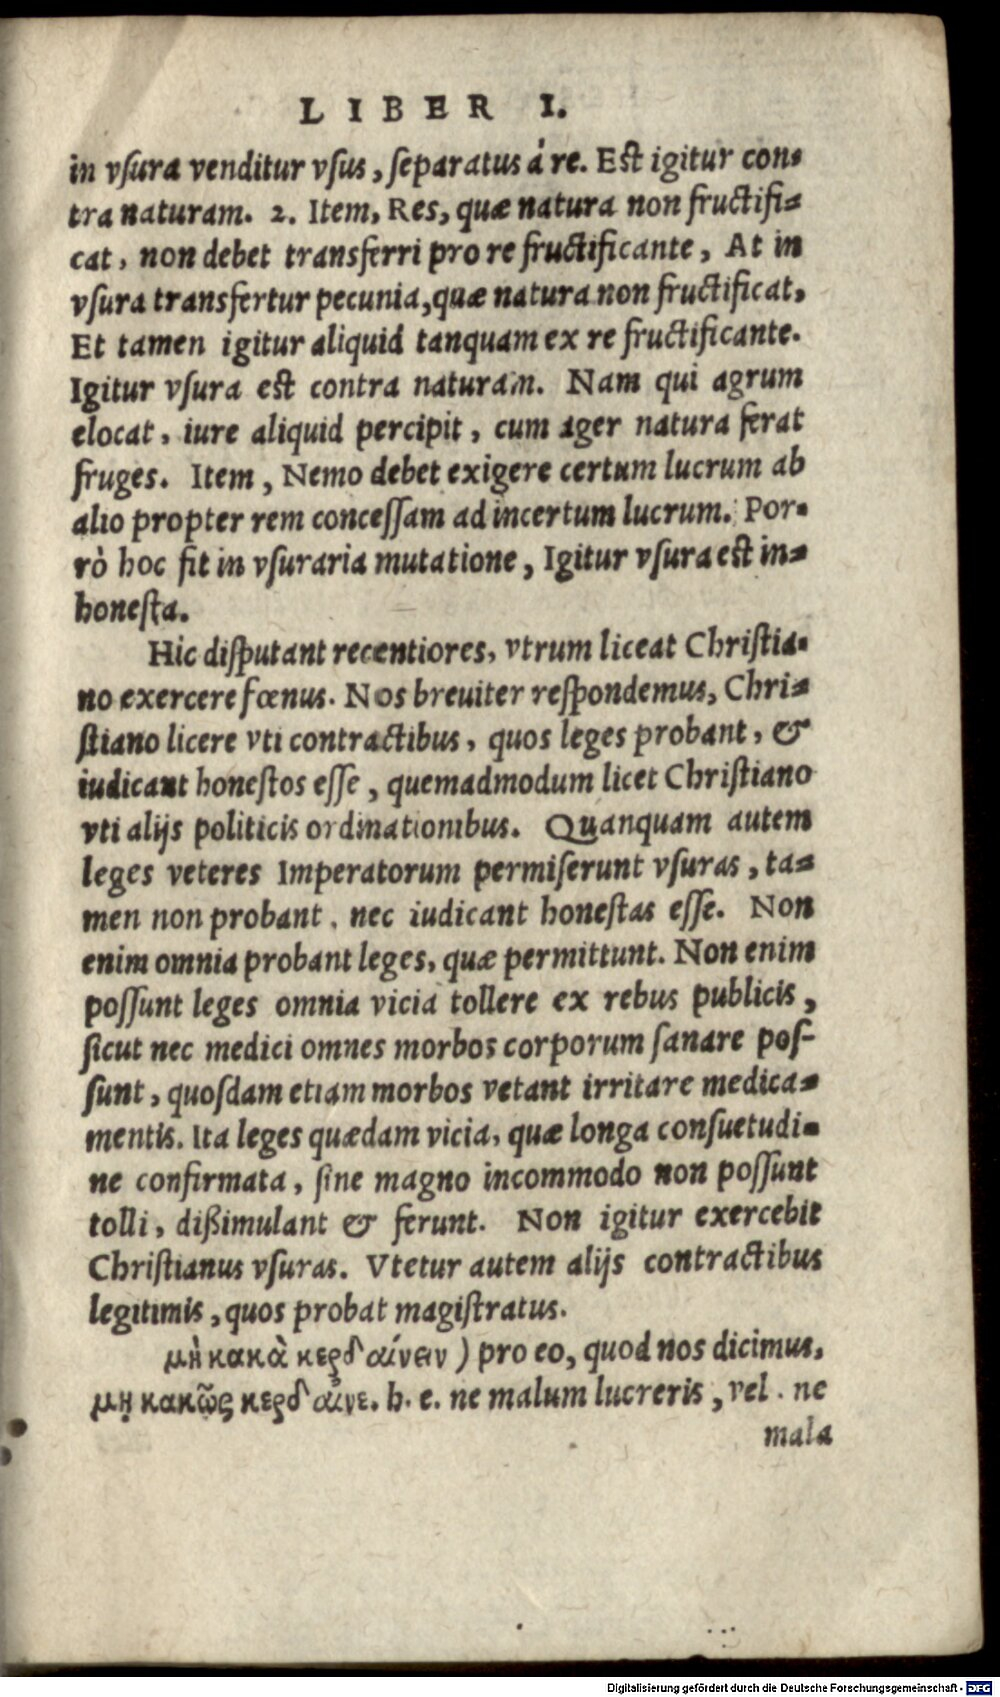 LIBER I.
in vſura venditur vſus, ſeparatus á re. Eſt igitur con-
tra naturam. 2. Item, Res, quæ natura non fructifi-
cat, non debet transferri pro re fructificante, At in
vſura transfertur pecunia, quæ natura non fructificat,
Et tamen igitur aliquid tanquam ex re fructificante.
Igitur vſura eſt contra naturam. Nam qui agrum
elocat, iure aliquid percipit, cum ager natura ferat
fruges. Item, Nemo debet exigere certum lucrum ab
alio propter rem conceſſam ad incertum lucrum. Por-
rò hoc fit in vſuraria mutatione, Igitur vſura eſt in-
honeſta.
Hic diſputant recentiores, vtrum liceat Chriſtia-
no exercere fœnus. Nos breuiter reſpondemus, Chri-
ſtiano licere vti contractibus, quos leges probant, &
iudicant honeſtos eſſe, quemadmodum licet Chriſtiano
vti alijs politicis ordinationibus. Quanquam autem
leges veteres Imperatorum permiſerunt vſuras, ta-
men non probant, nec iudicant honeſtas eſſe. Non
enim omnia probant leges, quæ permittunt. Non enim
poſſunt leges omnia vicia tollere ex rebus publicis,
ſicut nec medici omnes morbos corporum ſanare poſ-
ſunt, quoſdam etiam morbos vetant irritare medica-
mentis. Ita leges quædam vicia, quæ longa conſuetudi-
ne confirmata, ſine magno incommodo non poſſunt
tolli, dißimulant & ferunt. Non igitur exercebit
Chriſtianus vſuras. Vtetur autem alijs contractibus
legitimis, quos probat magiſtratus.
μὴ κακὰ κερδαίνειν) pro eo, quod nos dicimus,
μὴ κακῶς κερδαῖνε. h. e. ne malum lucreris, vel. ne
mala
Digitalisierung gefördert durch die Deutsche Forschungsgemeinschaft - DFG